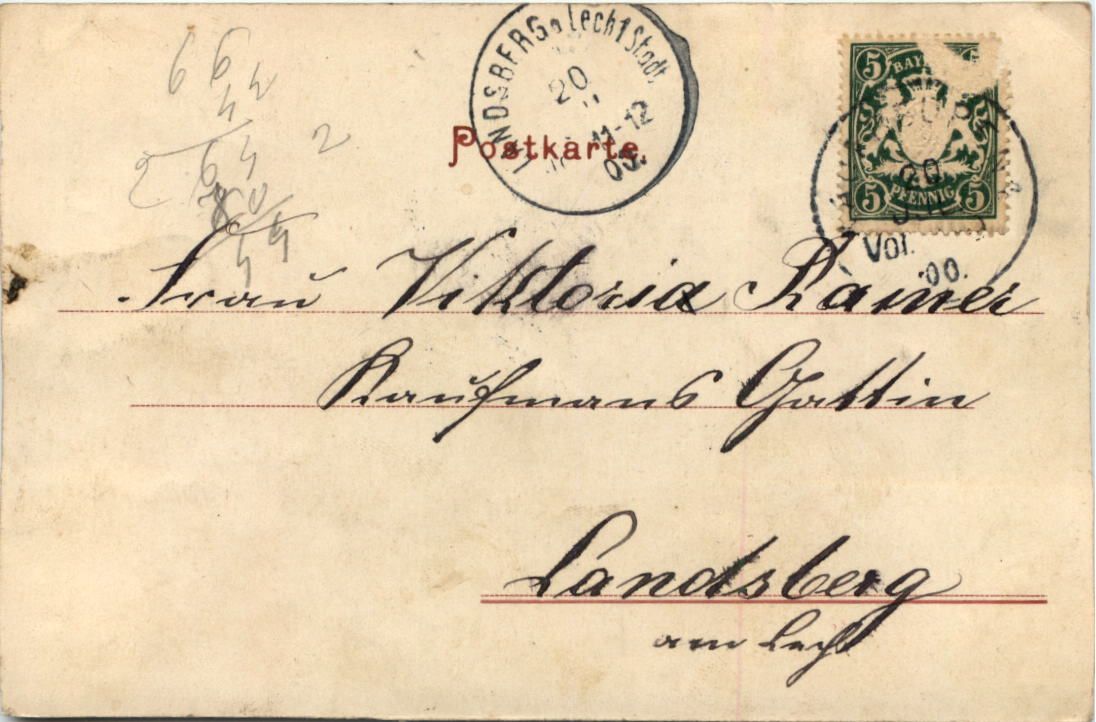 6 6
4 2
2 6 4 2
LANDSBERG a Lech 1 Stadt.
20
11-12
05.
Postkarte
5 BAY 5
5 PFENNIG 5
20
Vor.
00.
Frau Viktoria Ramer
Kaufmans Gattin
Landsberg
am Lech